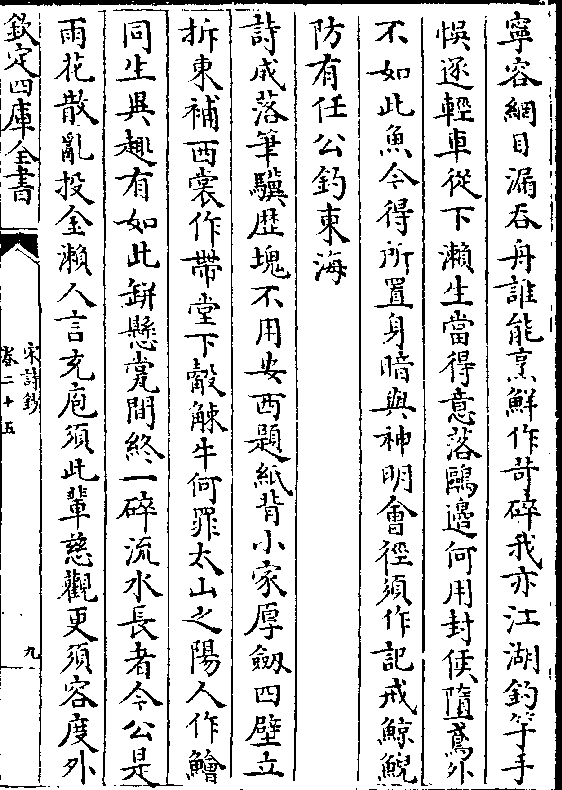 寧容網目漏吞舟誰能烹鮮作苛碎我亦江湖釣竿手
悞逐輕車從下瀨生當得意落鷗邊何用封侯墮鳶外
不如此魚今得所置身暗與神明會徑須作記戒鯨鯢
防有任公釣東海
詩成落筆驥歷塊不用安西題紙背小家厚斂四壁立
拆東補西裳作帶堂下觳觫牛何罪太山之陽人作鱠
同生異趣有如此缾懸甃間終一碎流水長者今公是
雨花散亂投金瀨人言充庖須此輩慈觀更須容度外
欽定四庫全書
宋詩鈔
卷二十五
九